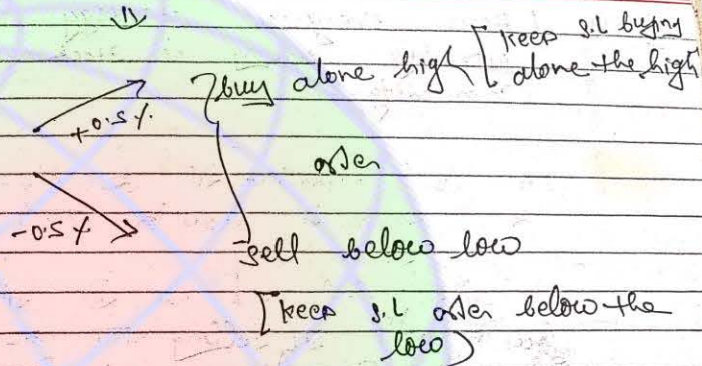 buy alone high [keep s.l buying
alone the high
+0.5%
order
-0.5%
sell below low
[keep s.l order below the
low]